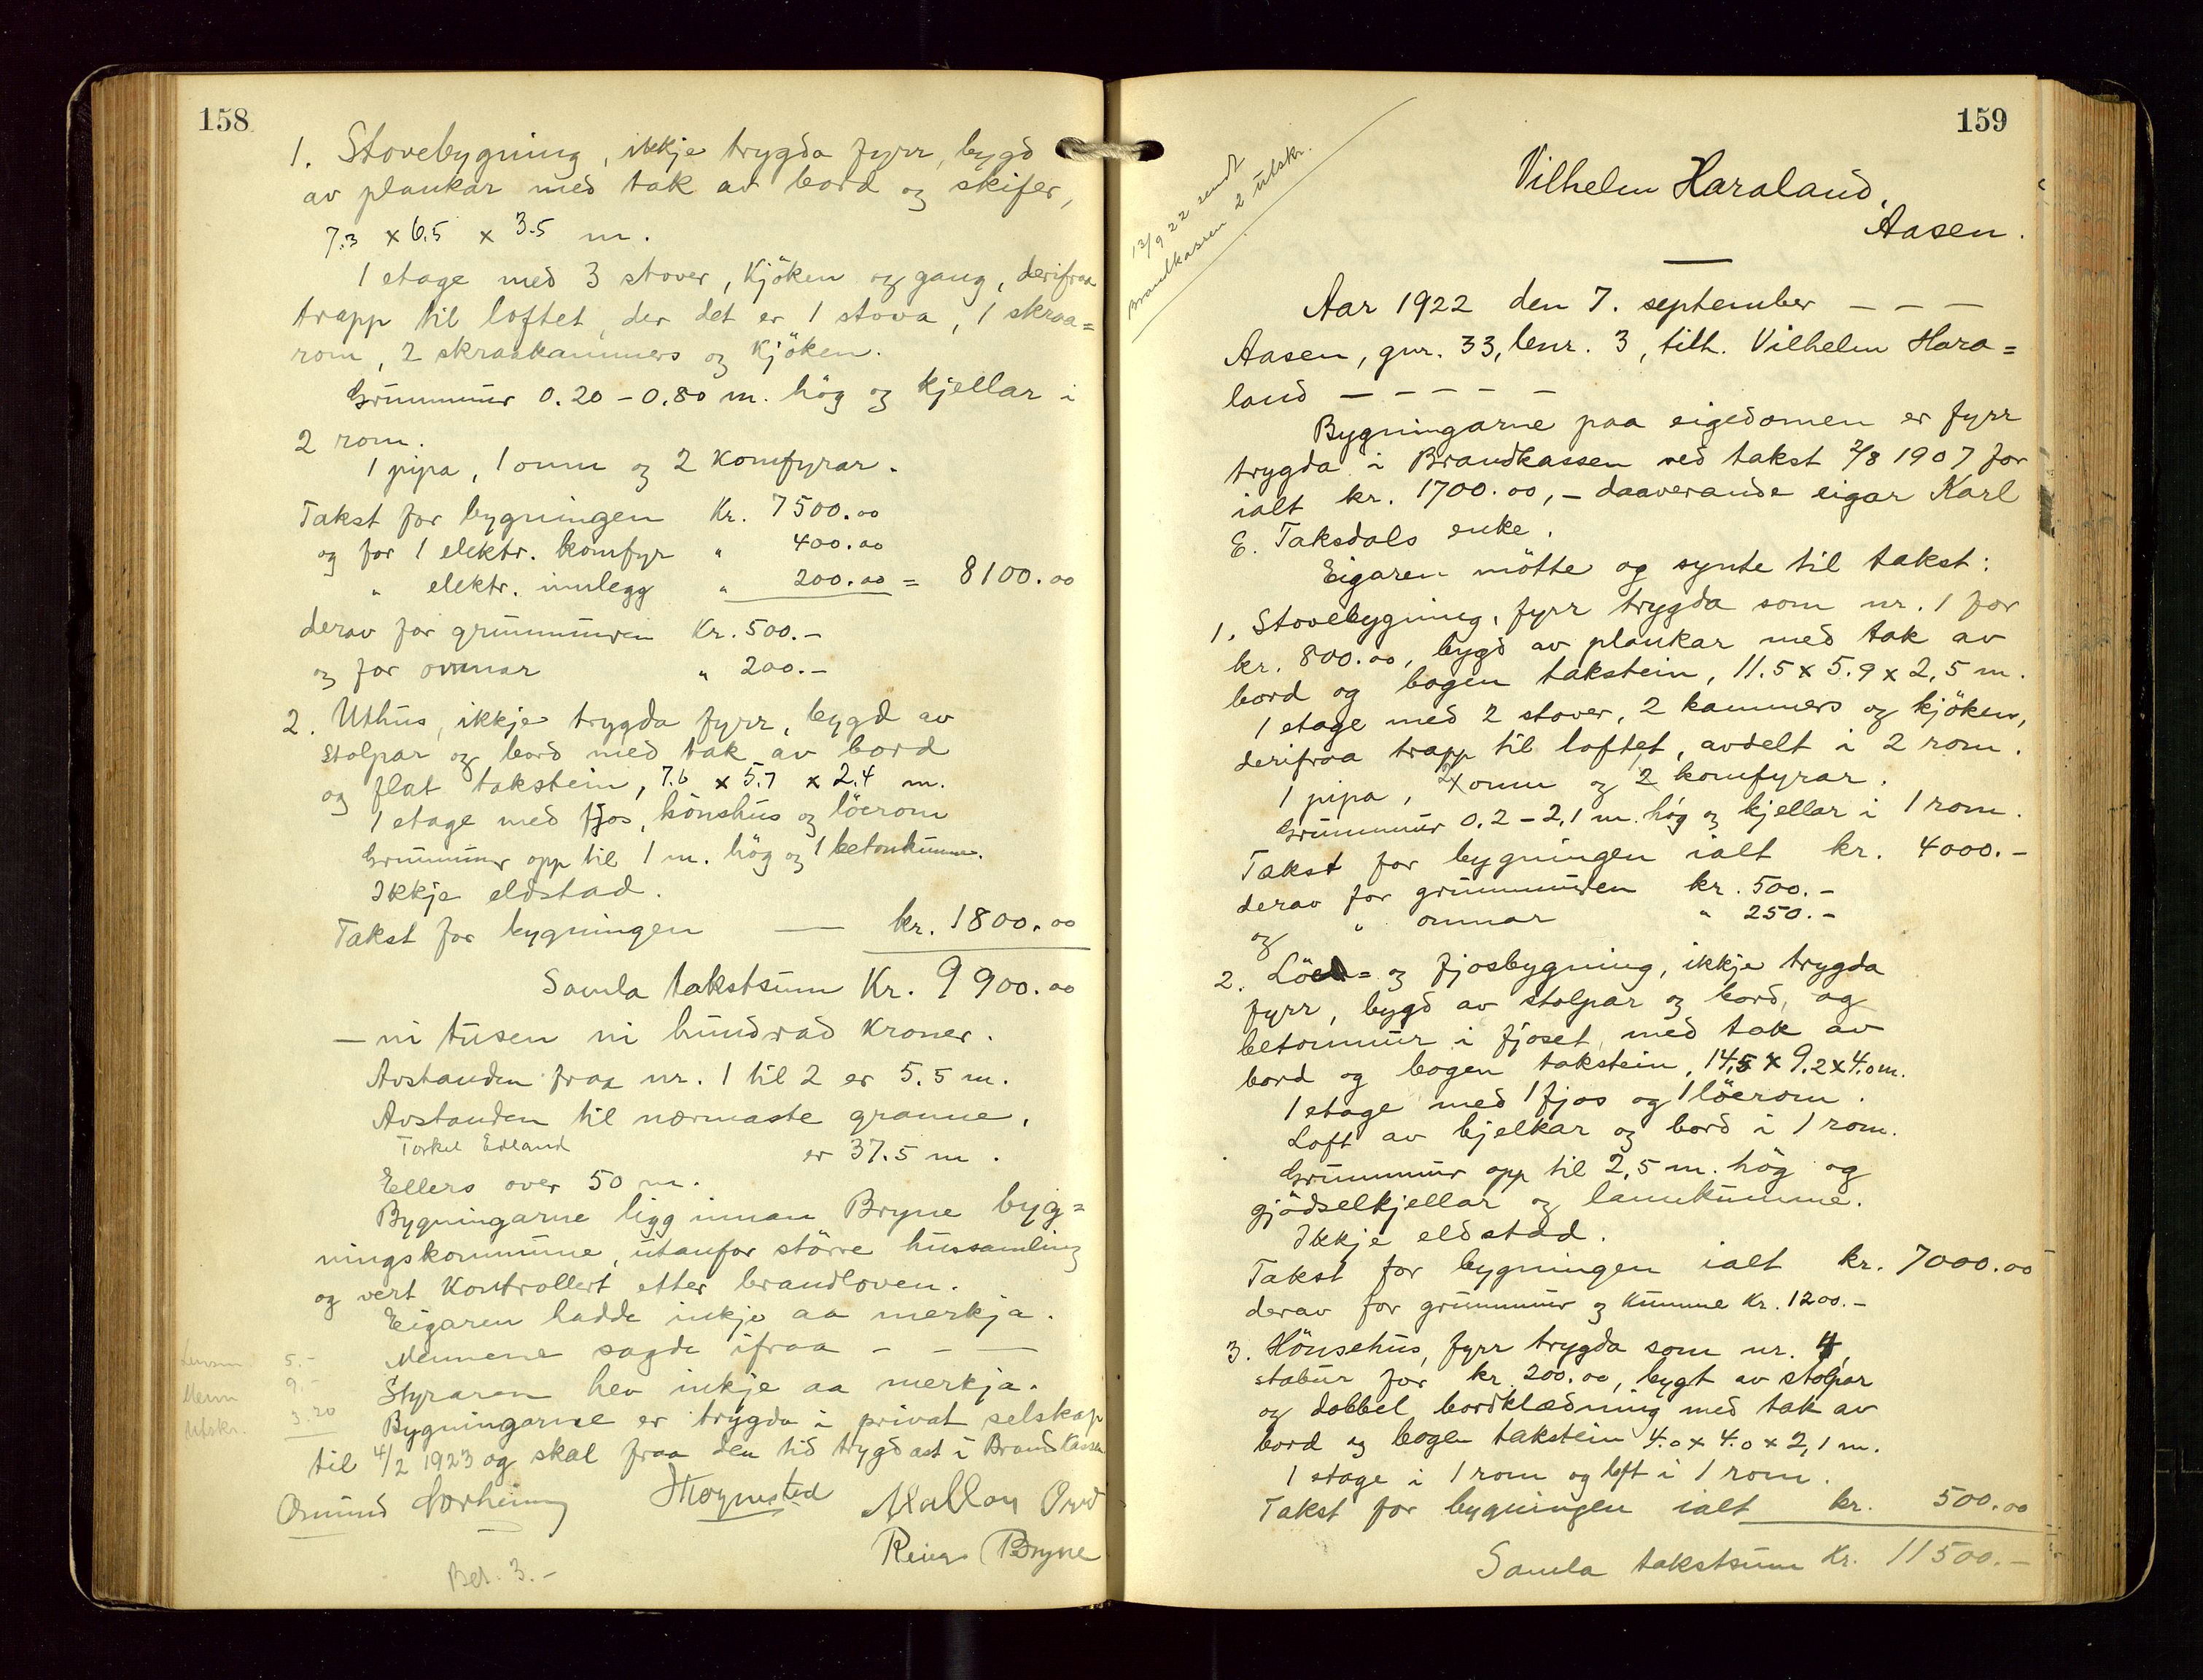 158
1. Stovebygning, ikkje trygda fyrr, bygd
av plankar med tak av bord og skifer,
7.3 x 6.5 x 3.5 m.
1 etage med 3 stover, Kjöken og gang, derifraa
trapp til loftet, der det er 1 stova, 1 skraa=
rom, 2 skraakammers og Kjöken.
Grunnmur 0.20 - 0.80 m. hög og kjellar i
2 rom.
1 pipa, 1 omn og 2 Komfyrar.
Takst for bygningen Kr. 7500.00
og for 1 elektr. komfyr " 400.00
" elektr. innlegg " 200.00 = 8100.00
derav for grunnmuren Kr. 500.-
og for omnar " 200.-
2. Uthus, ikkje trygda fyrr, bygd av
stolpar og bord med tak av bord
og flat takstein, 7.6 x 5.7 x 2.4 m.
1 etage med fjos, hönshus og löerom
Grunnmur opp til 1 m. hög og 1 betonkumme.
Ikkje eldstad.
Takst for bygningen — kr. 1800.00
Samla takstsum Kr. 9900.00
— ni tusen ni hundrad Kroner.
Avstanden fraa nr. 1 til 2 er 5.5 m.
Avstanden til nærmaste granne,
Torkel Edland er 37.5 m.
Ellers over 50 m.
Bygningarne ligg innan Bryne byg=
ningskommune, utanfor större hussamling
og vert Kontrollert etter brandloven.
Eigaren hadde inkje aa merkja.
Mennene sagde ifraa - - —
Styraren hev inkje aa merkja.
Bygningarne er trygda i privat selskap
til 4/2 1923 og skal fraa den tid trygdast i Brandkassen
Lensm. 5.-
Menn 9.-
Utskr. 3.20
Osmund Norheim
Reier Bryne
Bet. 3.-
159
13/9 22 sendt
Brandkassen 2 utskr.
Vilhelm Haraland,
Aasen.
Aar 1922 den 7. september - - -
Aasen, gnr. 33, bnr. 3, tilh. Vilhelm Hara=
land - - - - -
Bygningarne paa eigedomen er fyrr
trygda i Brandkassen ved takst 2/8 1907 for
ialt kr. 1700.00, - daaverande eigar Karl
E. Taksdals enke.
Eigaren mötte og synte til takst:
1. Stovebygning, fyrr trygda som nr. 1 for
kr. 800.00, bygd av plankar med tak av
bord og bogen takstein, 11.5 x 5.9 x 2,5 m.
1 etage med 2 stover, 2 kammers og kjöken,
derifraa trapp til loftet, avdelt i 2 rom.
1 pipa, 2 omn og 2 komfyrar.
Grunnmur 0.2 - 2,1 m. hög og kjellar i 1 rom.
Takst for bygningen ialt kr. 4000.-
derav for grunnmuren kr. 500.-
og " omnar " 250.-
2. Löe= og fjosbygning, ikkje trygda
fyrr, bygd av stolpar og bord, og
betonmur i fjoset, med tak av
bord og bogen takstein, 14,5 x 9.2 x 4.0 m.
1 etage med 1 fjos og 1 löerom.
Loft av bjelkar og bord i 1 rom.
Grunnmur opp til 2,5 m. hög og
gjödselkjellar og lannkumme.
Ikkje eldstad.
Takst for bygningen ialt kr. 7000.00
derav for grunnmur og Kumme Kr. 1200.-
3. Hönsehus, fyrr trygda som nr. 4,
stabur for kr. 200.00, bygt av stolpar
og dobbel bordklædning med tak av
bord og bogen takstein 4.0 x 4.0 x 2,1 m.
1 etage i 1 rom og loft i 1 rom.
Takst for bygningen ialt kr. 500.00
Samla takstsum Kr. 11500.-